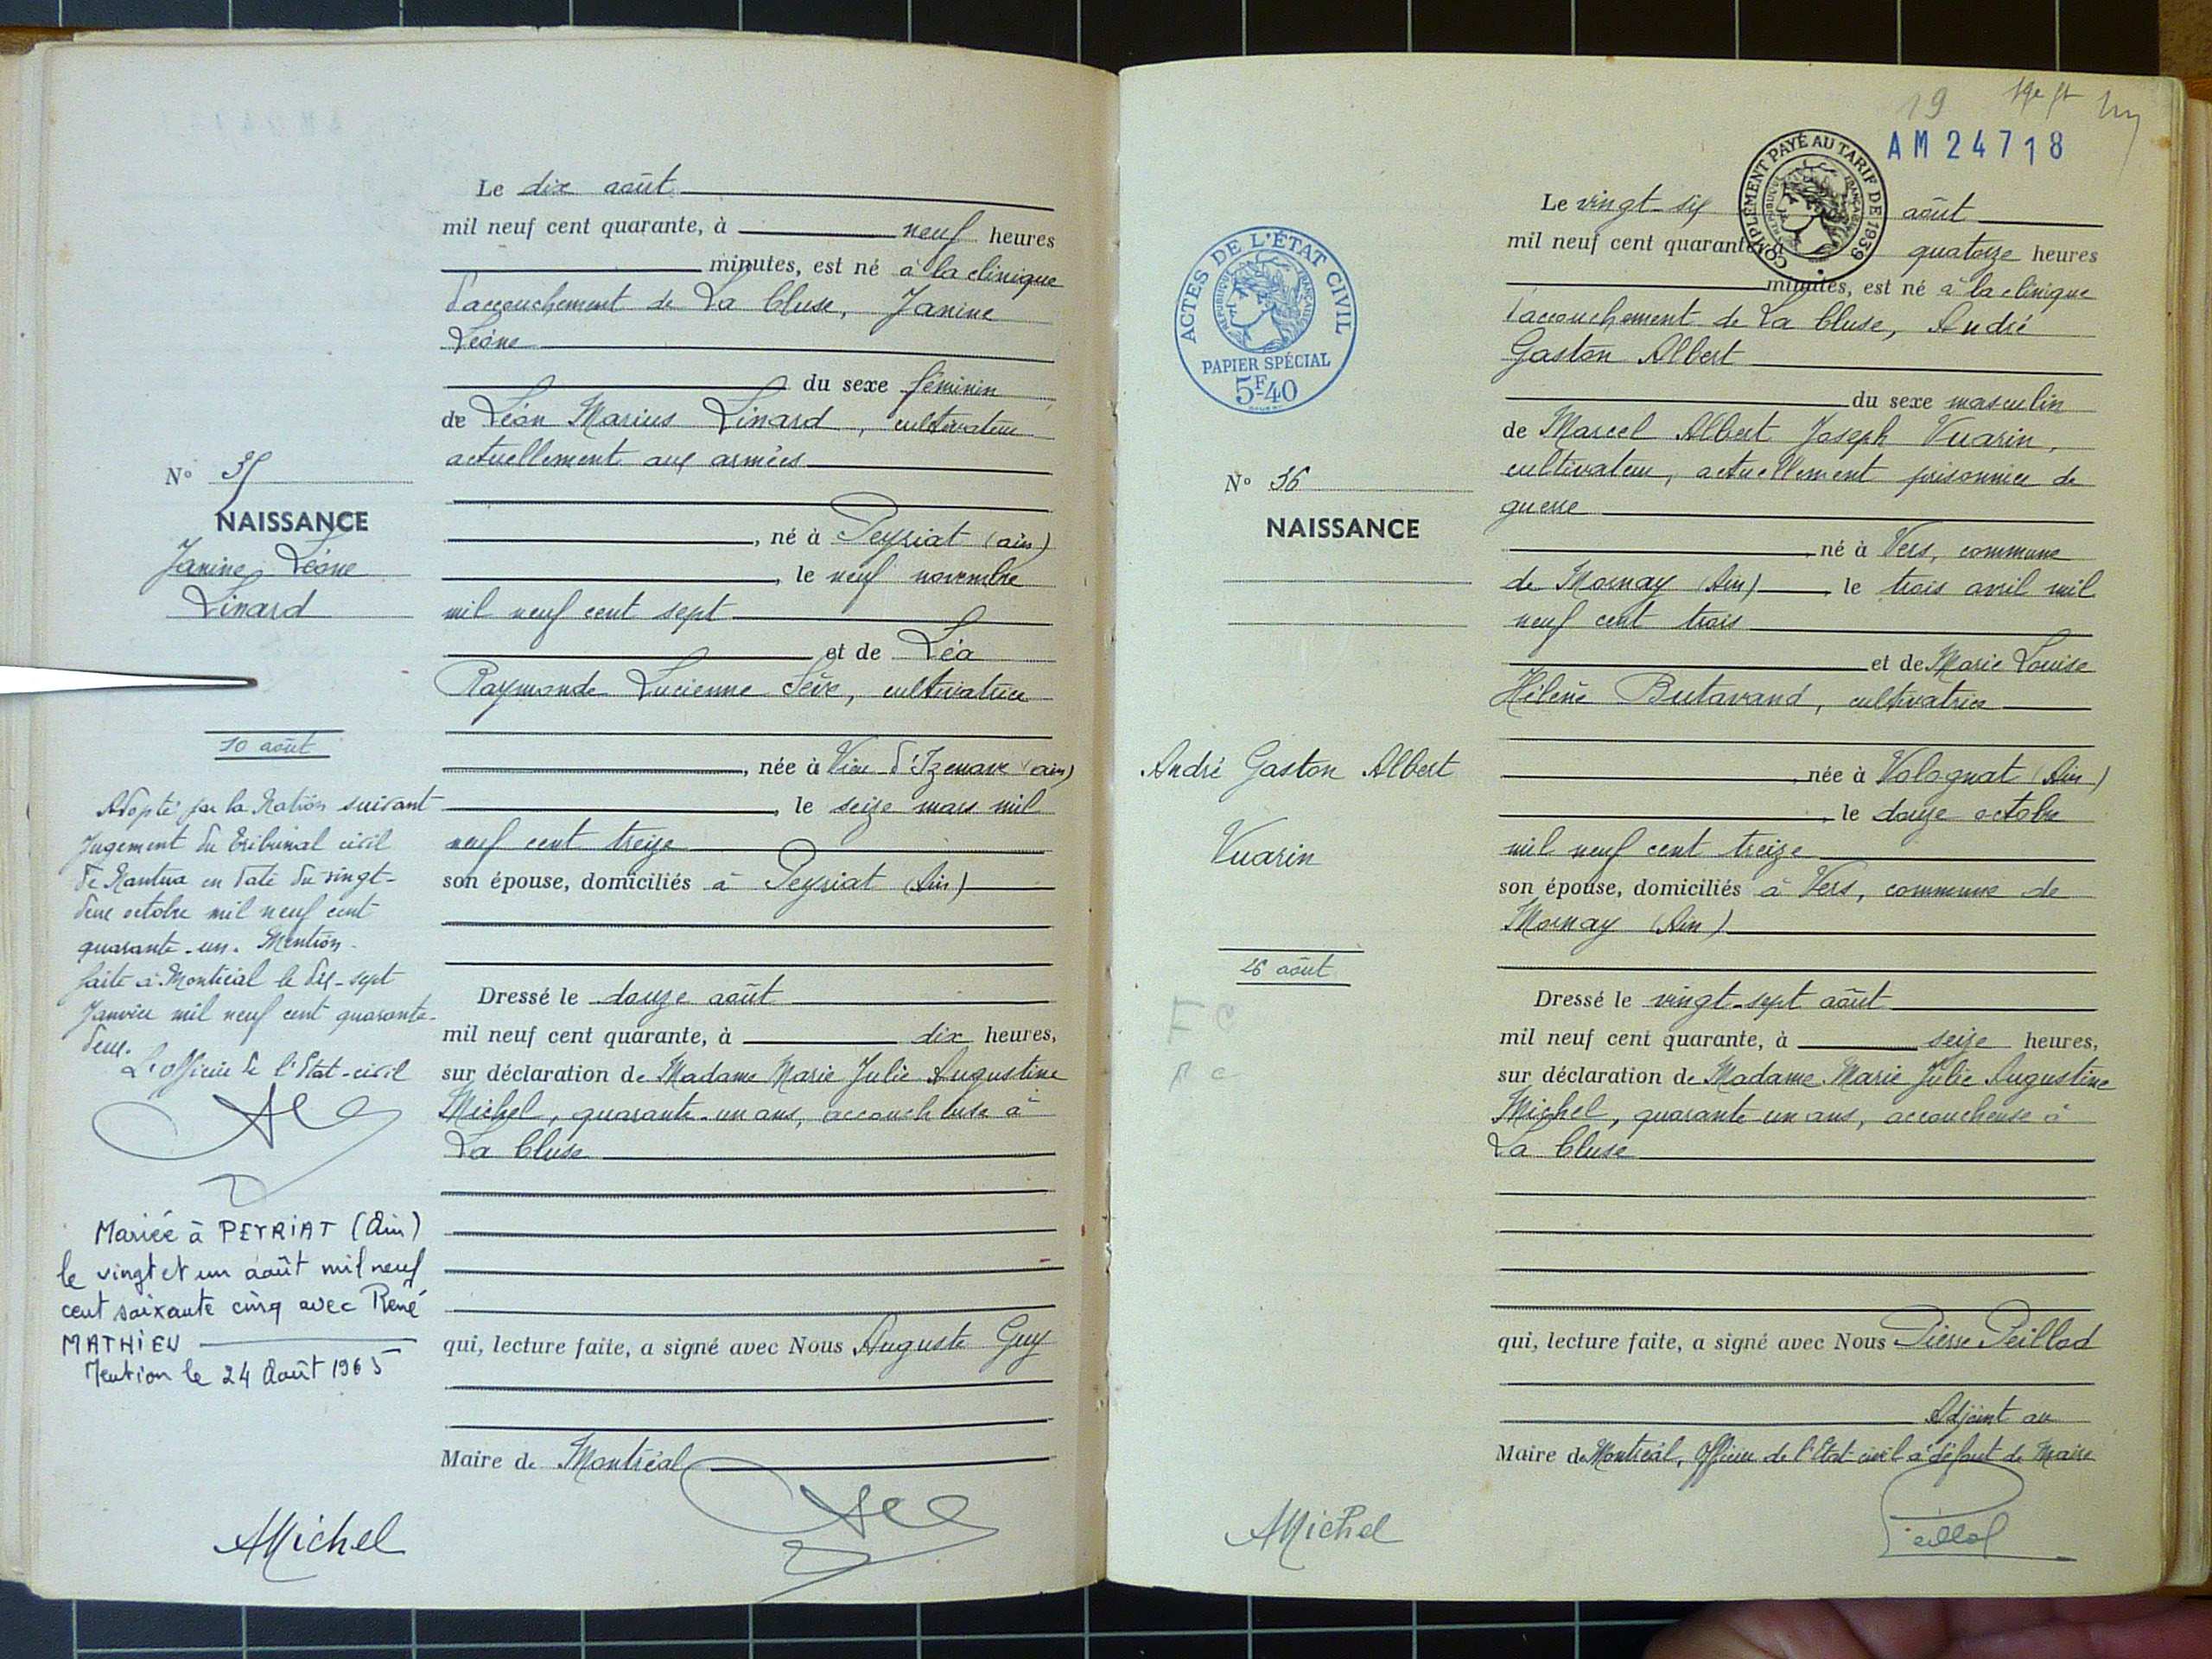 Le dix août
mil neuf cent quarante, à neuf heures
minutes, est né à la clinique
d'accouchement de La Cluse, Janine
Léone
du sexe féminin
de Léon Marius Linard, cultivateur
actuellement aux armées
, né à Peyriat (ain)
, le neuf novembre
mil neuf cent sept
et de Léa
Raymonde Lucienne Sève, cultivatrice
, née à Vieu-d'Izenave (ain)
, le seize mars mil
neuf cent treize
son épouse, domiciliés à Peyriat (Ain)
Dressé le douze août
mil neuf cent quarante, à dix heures,
sur déclaration de Madame Marie Julie Augustine
Michel, quarante-un ans, accoucheuse à
La Cluse
qui, lecture faite, a signé avec Nous Auguste Guy
Maire de Montréal
AMichel
N° 35
NAISSANCE
Janine Léone
Linard
10 août
Adopté par la Nation suivant
Jugement du tribunal civil
de Nantua en date du vingt-
deux octobre mil neuf cent
quarante-un. Mention
faite à Montréal le dix-sept
Janvier mil neuf cent quarante-
deux.
L'officier de l'Etat-civil
Mariée à PEYRIAT (Ain)
le vingt et un août mil neuf
cent soixante cinq avec René
MATHIEU
Mention le 24 Août 1965
19
AM 24718
COMPLÉMENT PAYÉ AU TARIF DE 1939
RÉPUBLIQUE FRANÇAISE
Le vingt-six août
mil neuf cent quarante, à quatorze heures
minutes, est né à la clinique
d'accouchement de La Cluse, André
Gaston Albert
du sexe masculin
de Marcel Albert Joseph Vuarin,
cultivateur, actuellement prisonnier de
guerre
né à Vers, commune
de Mornay (Ain), le trois avril mil
neuf cent trois
et de Marie Louise
Hélène Butavand, cultivatrice
, née à Volognat (Ain)
, le douze octobre
mil neuf cent treize
son épouse, domiciliés à Vers, commune de
Mornay (Ain)
Dressé le vingt-sept août
mil neuf cent quarante, à seize heures,
sur déclaration de Madame Marie Julie Augustine
Michel, quarante-un ans, accoucheuse à
La Cluse
qui, lecture faite, a signé avec Nous Pierre Peillod
Adjoint au
Maire de Montréal, Officier de l'Etat-civil à défaut de Maire
AMichel
Peillod
ACTES DE L'ÉTAT CIVIL
RÉPUBLIQUE FRANÇAISE
PAPIER SPÉCIAL
5F40
N° 36
NAISSANCE
André Gaston Albert
Vuarin
26 août